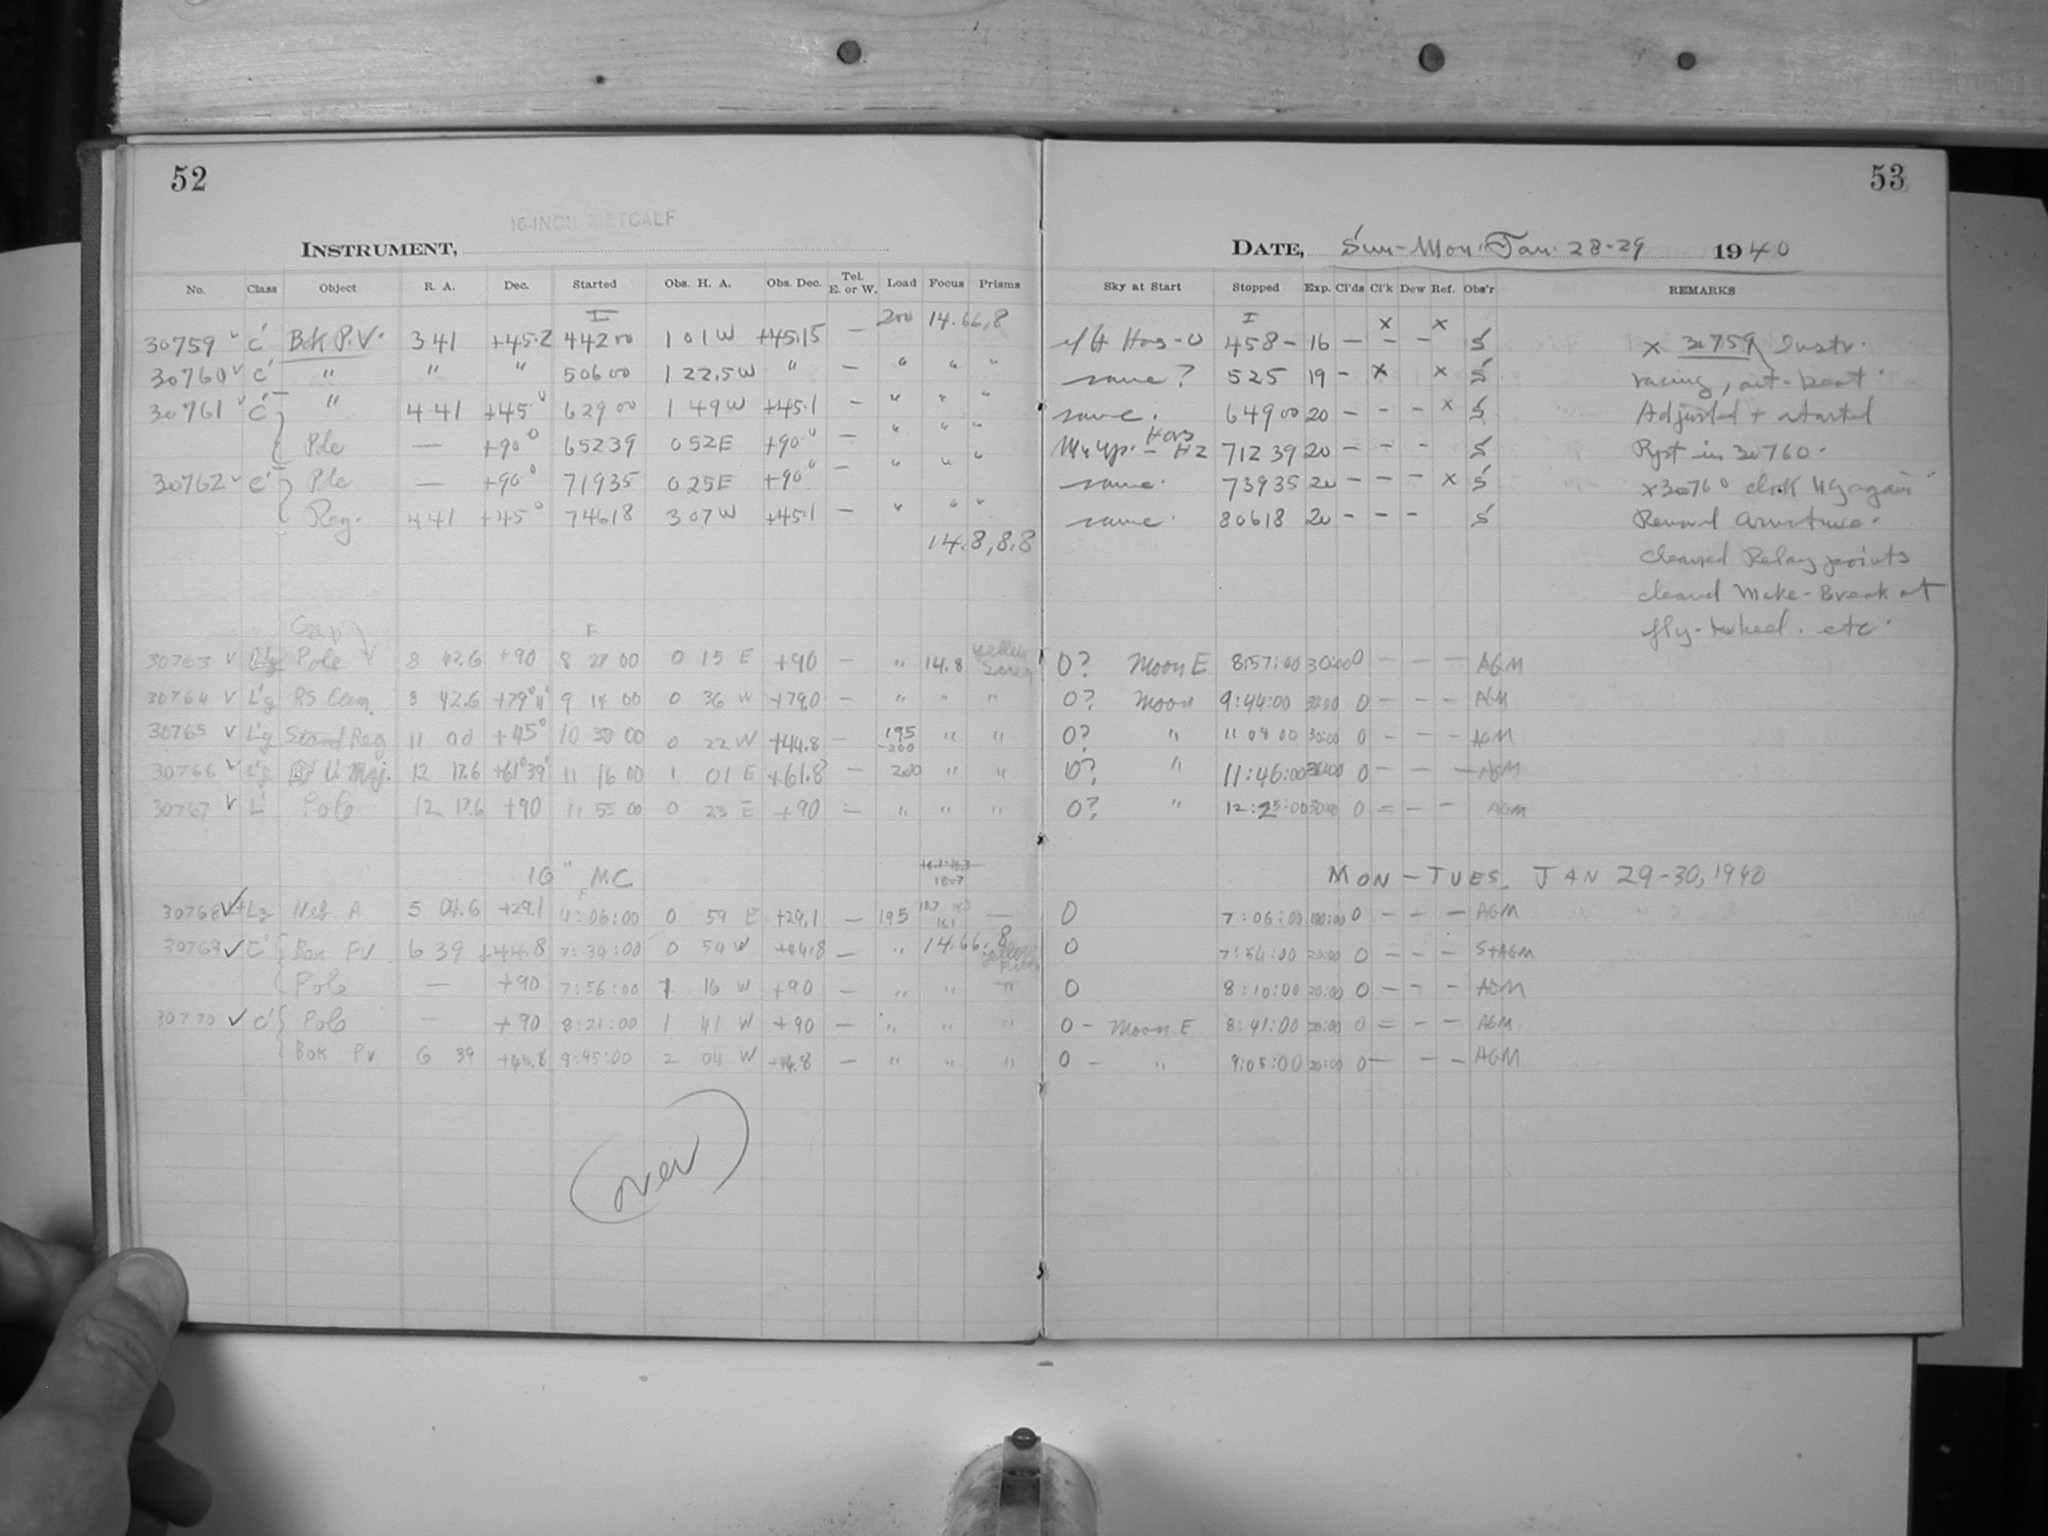 52
53
16-INCH METCALF
INSTRUMENT,
DATE, Sun-Mon. Jan. 28-29 1940
No. Class Object R. A. Dec. Started Obs. H. A. Obs. Dec. Tel. E. or W. Load Focus Prisms Sky at Start Stopped Exp. Cl'ds Cl'k Dew Ref. Obs'r REMARKS
I 200 14.66,8 I x x
30759 v C' Bok P.V. 3 41 +45.2 442 00 1 01 W +45.15 — 458 — 16 — — — S x 30759 Instr.
30760 v C' " " " 506 00 1 22.5 W " — " " " same? 525 19 — x x S racing,
30761 v C' " 4 41 +45° 629 00 1 49 W +45.1 — " " " same. 649 00 20 — — — x S Adjusted + started
Pole — +90° 652 39 0 52 E +90° — " " " 712 39 20 — — — S Rpt in 30760.
30762 v C' Pole — +90° 719 35 0 25 E +90° — " " " same. 739 35 20 — — — x S x 30760 again
Reg. 4 41 +45° 746 18 3 07 W +45.1 — " " " same. 806 18 20 — — — S
14.8,8.8 cleaned Relay points
cleaned Make-Break at
fly-wheel. etc.
30763 v Pole 8 42.6 +90 8 27 00 0 15 E +90 — " 14.8 yellow Screen 0? Moon E 8:57:00 30:00 0 — — — AGM
30764 v L'g RS Cam. 8 42.6 +79° 11' 9 14 00 0 36 W +79.0 — " " " 0? Moon 9:44:00 30:00 0 — — — AGM
30765 v L'g Reg 11 00 +45° 10 38 00 0 22 W +44.8 — 195-200 " " 0? " 11 08 00 30:00 0 — — — AGM
30766 v L'g U Maj. 12 17.6 +61° 39' 11 16 00 1 01 E +61.8 — 200 " " 0? " 11:46:00 30:00 0 — — — AGM
30767 v L' Pole 12 17.6 +90 11 55 00 0 23 E +90 — " " " 0? " 12:25:00 30:00 0 = — — AGM
16" MC MON-TUES. JAN 29-30, 1940
30768 Neb. A 5 04.6 +29.1 4:06:00 0 59 E +29.1 — 195 — 0 7:06:00 180:00 0 — — — AGM
30769 ✓ C' Bok PV 6 39 +44.8 7:34:00 0 54 W +44.8 — " 14.66,8 yellow Filter 0 7:54:00 20:00 0 — — — S+AGM
Pole — +90 7:56:00 1 16 W +90 — " " " 0 8:10:00 20:00 0 — — — AGM
30770 ✓ C' Pole — +90 8:21:00 1 41 W +90 — " " " 0 — Moon E 8:41:00 20:00 0 = — — AGM
Bok PV 6 39 +44.8 8:45:00 2 04 W +44.8 — " " " 0 — " 9:05:00 20:00 0 — — — AGM
(over)